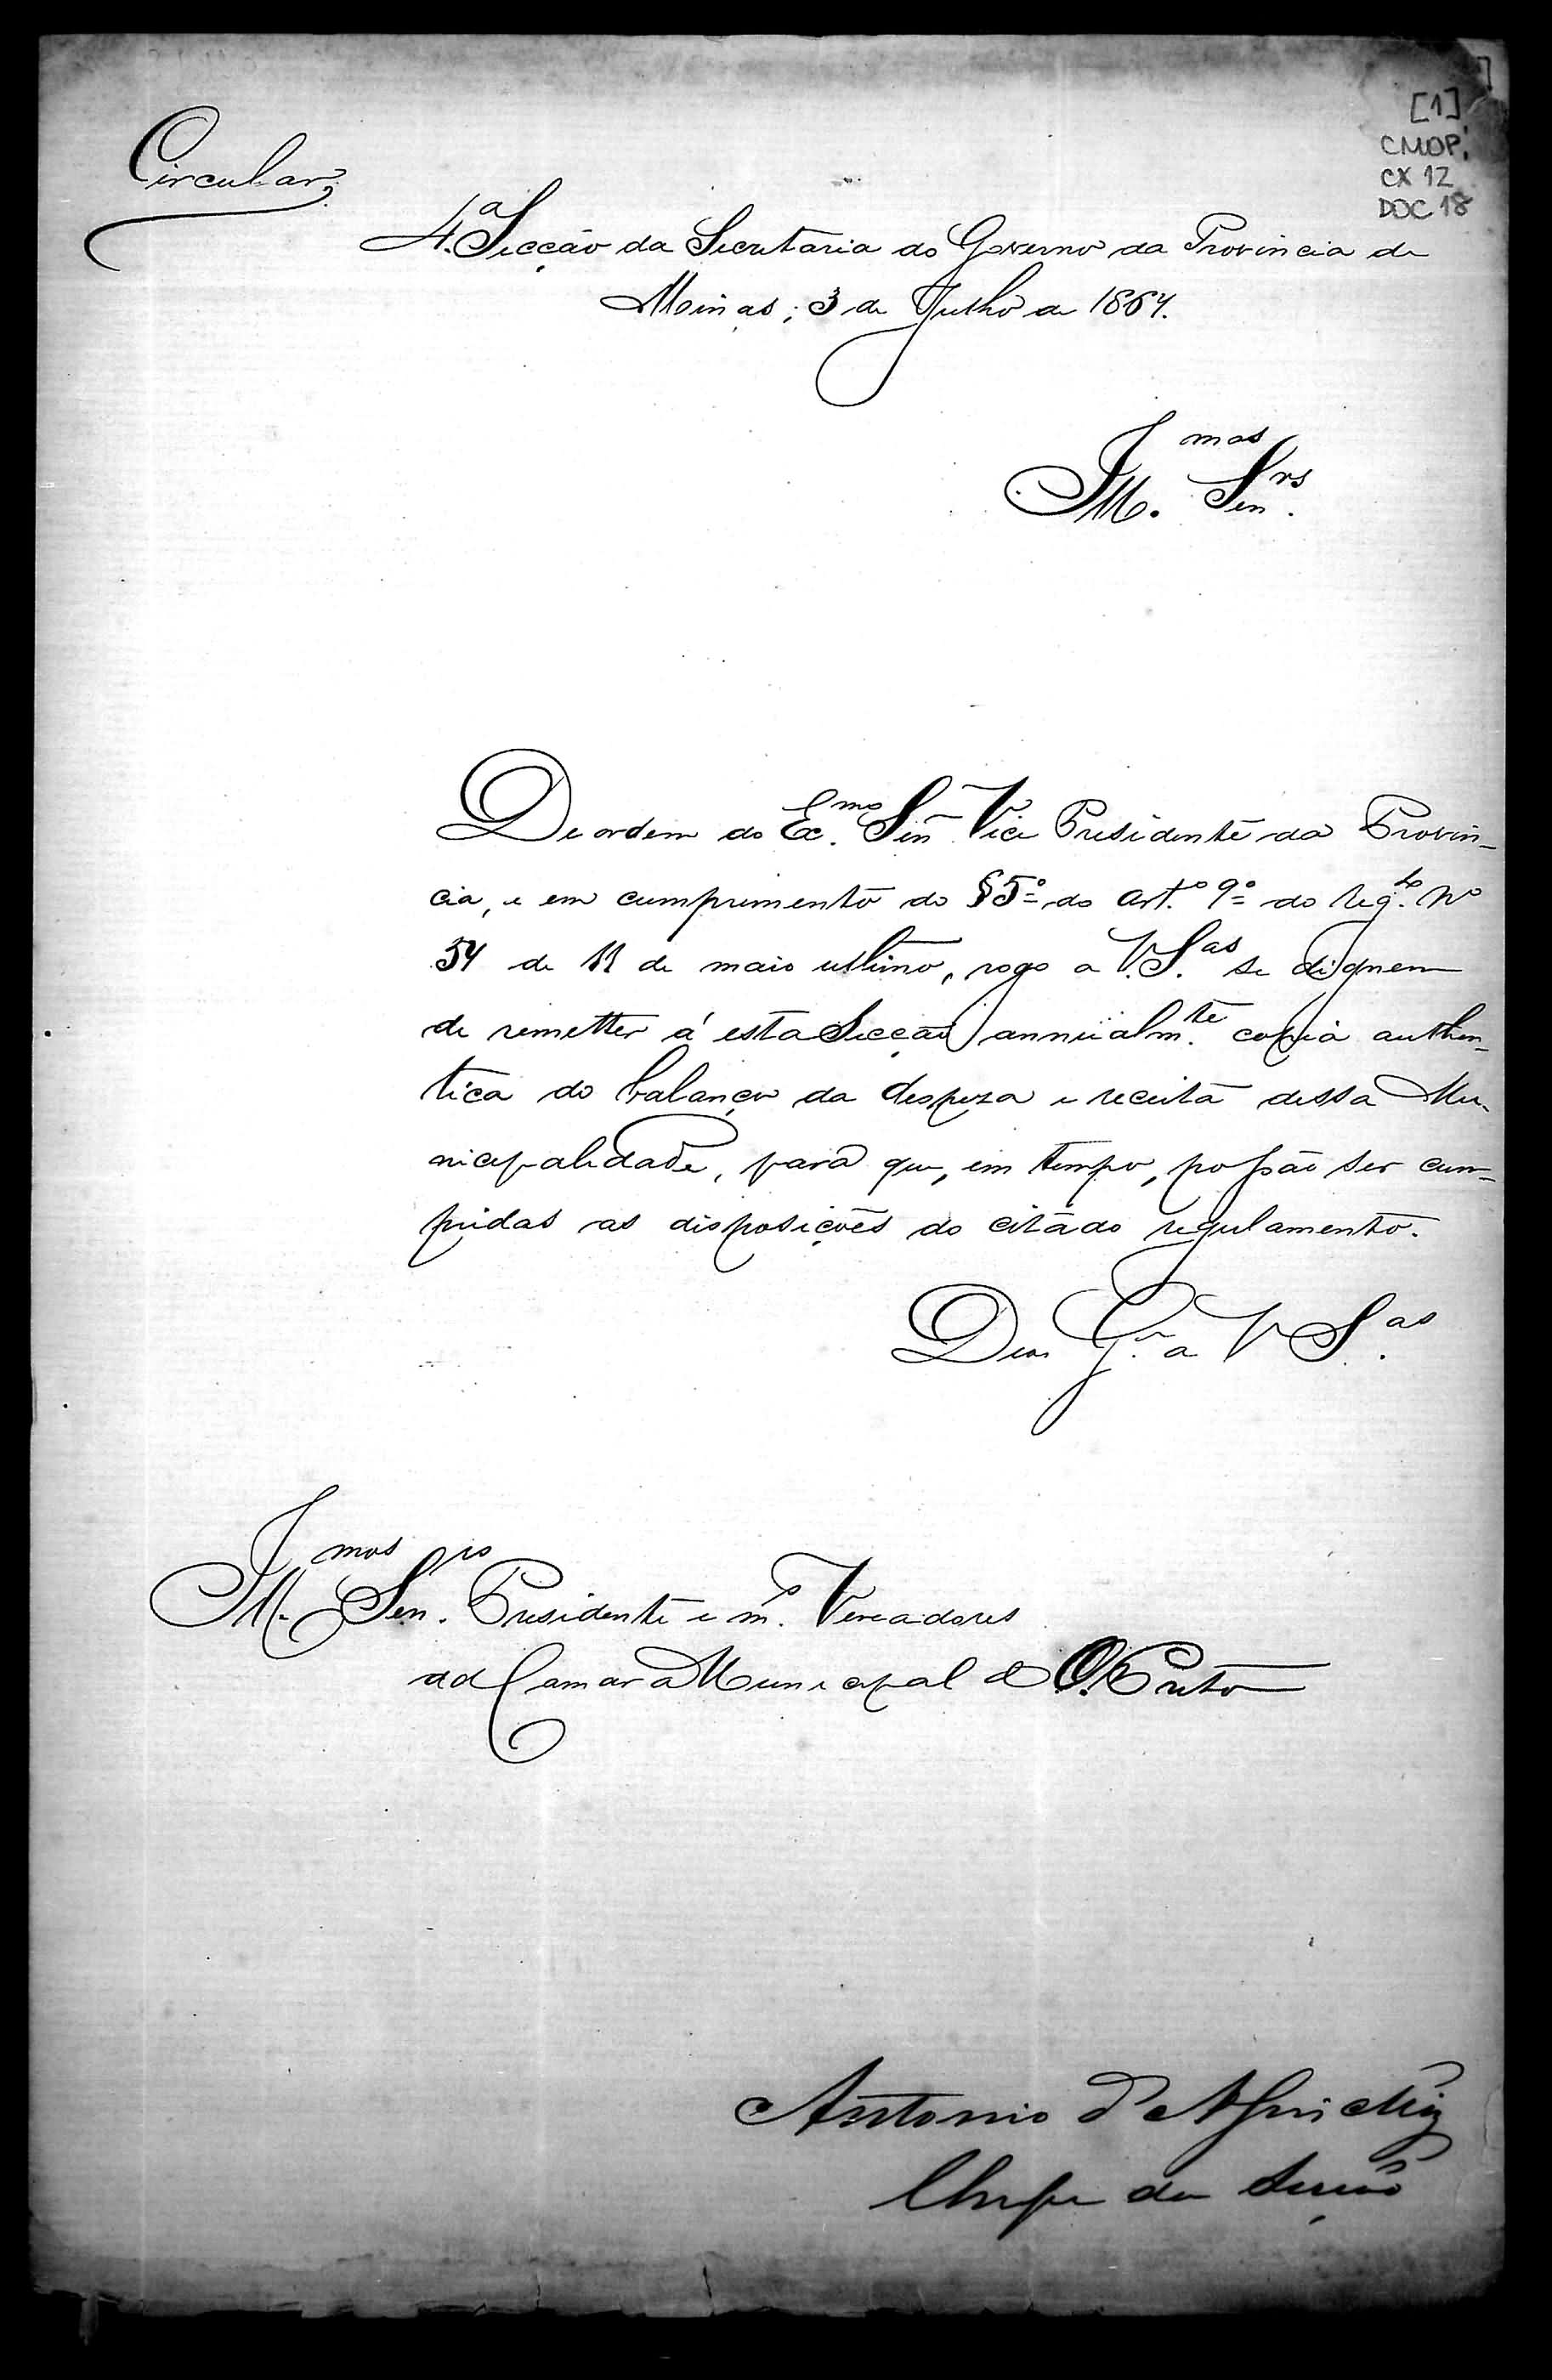 [1]
CMOP
CX 12
DOC 18
Circular
4.ª Secção da Secretaria do Governo da Provincia de
Minas, 3 de Julho de 1867.
Ill.mos Sen.rs
De ordem do Ex.mo Señ Vice Presidente da Provin-
cia, e em cumprimento do § 5º do art.º 9º do reg.to Nº
54 de 11 de maio ultimo, rogo a V. S.as se dignem
de remetter á esta Secção annualm.te copia authen-
tica do balanço da despeza e receita dessa Mu-
nicipalidade, para que, em tempo, possão ser cum-
pridas as disposições do citado regulamento.
Deos G.e a V S.as
Ill.mos Sen.rs Presidente e m.s Vereadores
da Camara Municipal do O. Preto
Antonio
Chefe da Secção